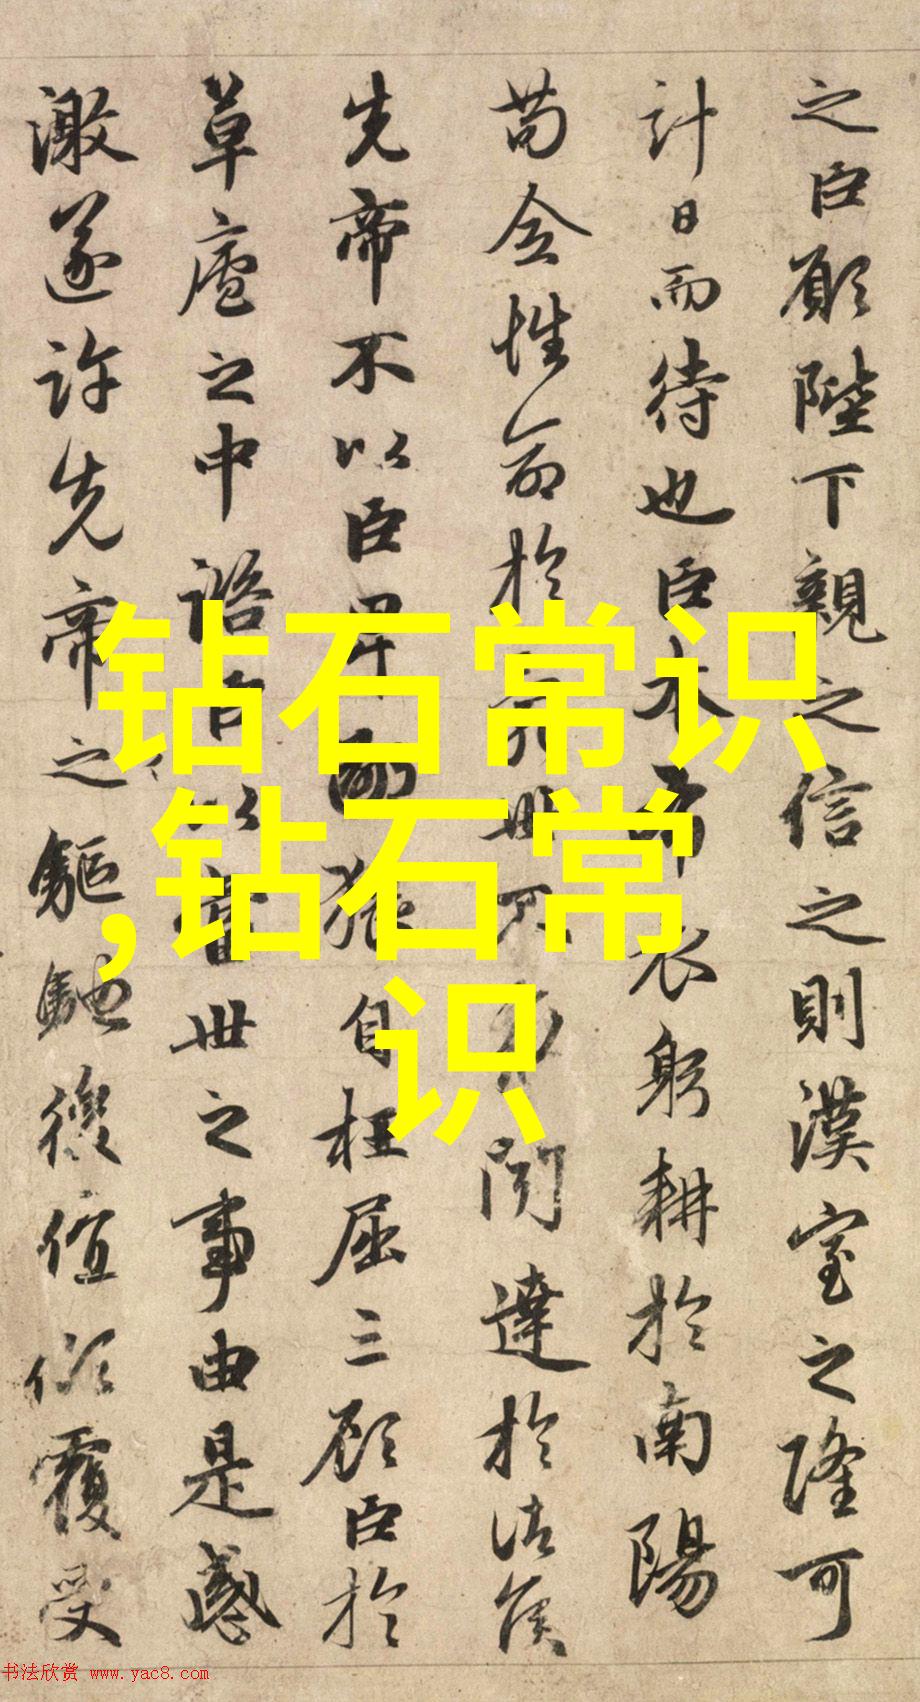 之臣願陛下親之信之則漢室之隆可
計日而待也臣本布衣躬耕於南陽
苟全性命於亂世不求聞達於諸侯
先帝不以臣卑鄙猥自枉屈三顧臣於
草廬之中諮臣以當世之事由是感
激遂許先帝之驅馳後值傾覆受
钻石常识
,钻石常
识
书法欣赏 www.yac8.com